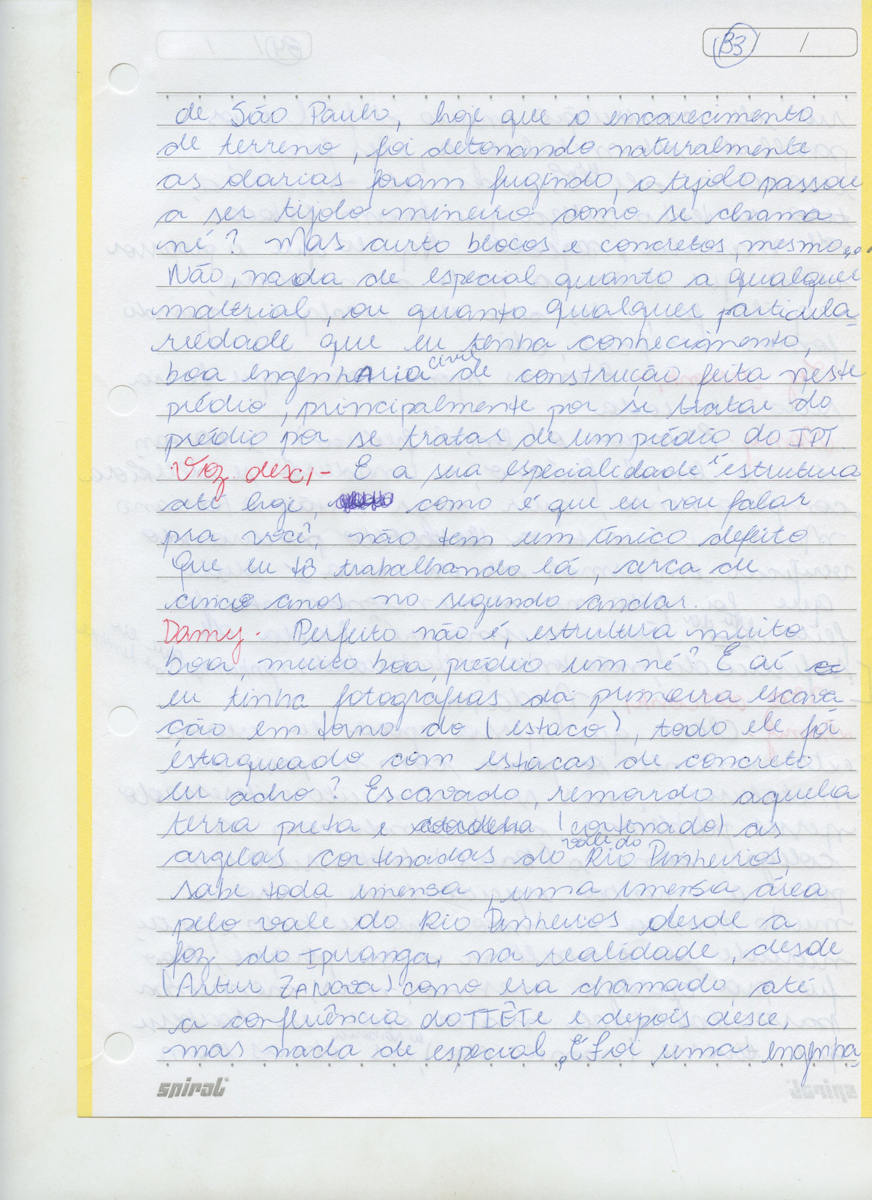 33 /
de São Paulo, hoje que o encarecimento
de terreno, foi detonando naturalmente
as olarias foram fugindo, o tijolo passou
a ser tijolo mineiro como se chama
né? Mas curto blocos e concretos, mesmo...
Não, nada de especial quanto a qualquer
material, ou quanto qualquer particula-
riedade que eu tenha conhecimento,
boa engenharia civil de construção feita neste
prédio, principalmente por se tratar do
prédio por se tratar de um prédio do IPT
Voz desc, - E a sua especialidade é estrutura
até hoje como é que eu vou falar
pra você, não tem um único defeito
Que eu tô trabalhando lá, cerca de
cinco anos no segundo andar.
Damy. Perfeito não é, estrutura muito
boa, muito boa, prédio um né? E aí
eu tinha fotográfias da primeira escava-
ção em torno do (estaco), todo ele foi
estaqueado com estacas de concreto
eu acho? Escavado, remordo aquela
terra preta e (cortinado) as
argelas cortinadas do vale do Rio Pinheiros,
sabe toda imensa, uma imensa área
pelo vale do Rio Pinheiros desde a
foz do Ipranga, na realidade, desde
(Artur ) como era chamado até
a confluência do TIÊTe e depois desce,
mas nada de especial, É foi uma engenha-
spiral